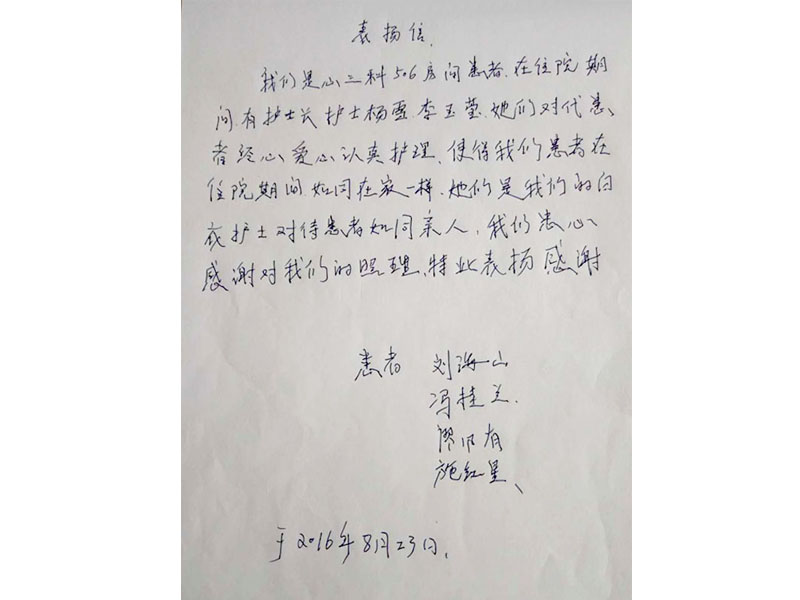 表扬信.
我们是心三科506房间患者.在住院期
间.有护士长护士杨雪.李玉莹.她们对代患
者经心爱心认真护理.使得我们患者在
住院期间.如同在家一样.她们是我们的白
衣护士对待患者如同亲人,我们忠心
感谢对我们的照理、特此表扬感谢
患者 刘海山
冯桂兰.
有
施红星、
于2016年8月23日.